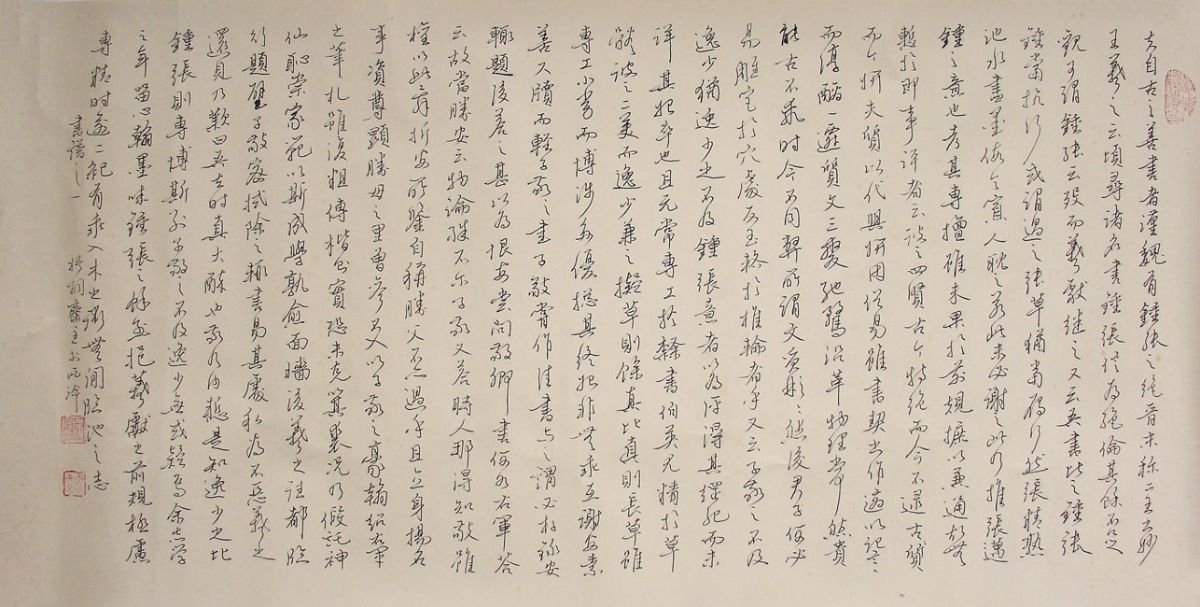 夫自古之善書者漢魏有鍾張之絕晉末稱二王之妙
王羲之云頃尋諸名書鍾張信為絕倫其餘不足
觀可謂鍾張云沒而羲獻繼之又云吾書比之鍾張
鍾當抗行或謂過之張草猶當雁行然張精熟
池水盡墨假令寡人耽之若此未必謝之此乃推張邁
鍾之意也考其專擅雖未果於前規摭以兼通故無
慙於即事評者云彼之四賢古今特絕而今不逮古古質
而今妍夫質以代興妍因俗易雖書契之作適以記言
而淳醨一遷質文三變馳騖沿革物理常然貴
能古不乖時今不同弊所謂文質彬彬然後君子何必
易雕宮於穴處反玉輅於椎輪者乎又云子敬之不及
逸少猶逸少之不及鍾張意者以為評得其綱紀而未
詳其始卒也且元常專工於隸書伯英尤精於草
體彼之二美而逸少兼之擬草則餘真比真則長草雖
專工小劣而博涉多優總其終始匪無乖互謝安素
善尺牘而輕子敬之書子敬嘗作佳書與之謂必存錄安
輒題後答之甚以為恨安嘗問敬卿書何如右軍答
云故當勝安云物論殊不爾子敬又答時人那得知敬雖
權以此辭折安所鑒自稱勝父不亦過乎且立身揚名
事資尊顯勝母之里曾參不入以子敬之豪翰紹右軍
之筆札雖復粗傳楷則實恐未克箕裘況乃假託神
仙恥崇家範以斯成學孰愈面牆後羲之往都臨
行題壁子敬密拭除之輒書易其處私為不惡羲之
還見乃歎曰吾去時真大醉也敬乃內慙是知逸少之比
鍾張則專博斯別子敬之不及逸少無或疑焉余志學
之年留心翰墨味鍾張之餘烈挹羲獻之前規極慮
專精時逾二紀有乖入木之術無間臨池之志
書譜之一
梧桐齋主書